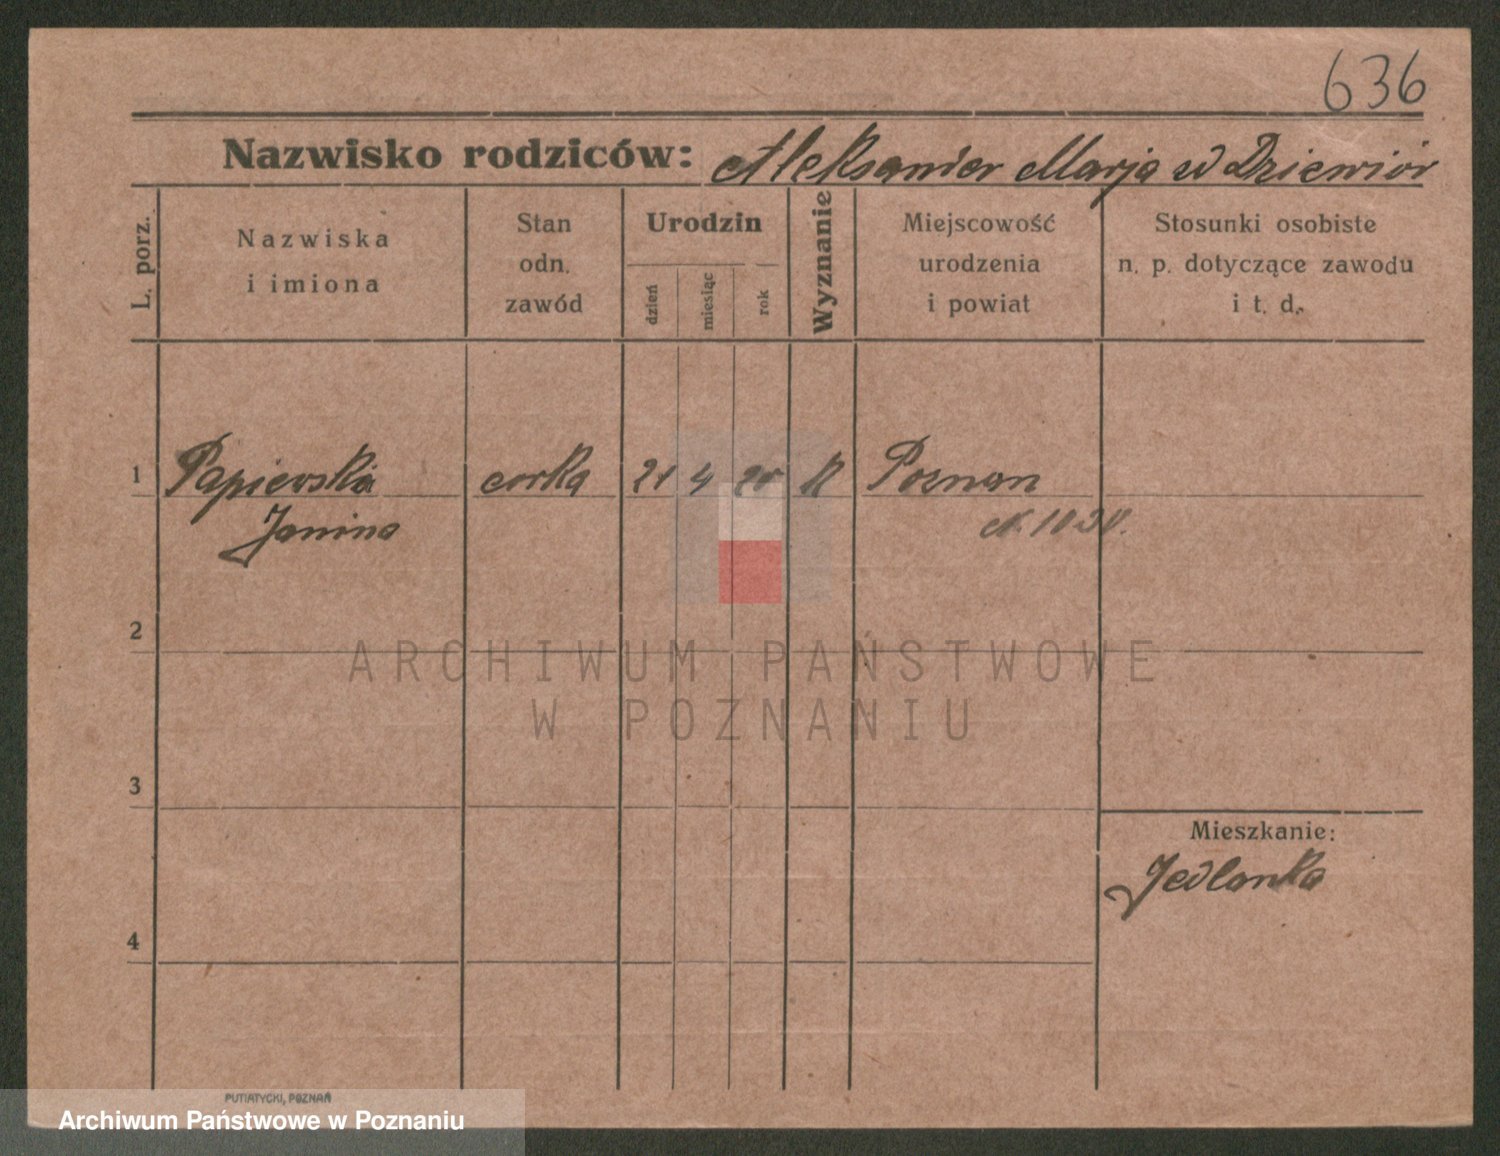 636
Nazwisko rodziców: Aleksander Marja zd Dziewiór
L. porz.
Nazwiska
i imiona
Stan
odn.
zawód
Urodzin
dzień
miesiąc
rok
Wyznanie
Miejscowość
urodzenia
i powiat
Stosunki osobiste
n. p. dotyczące zawodu
i t. d.
1 Papierska corka 21 4 20 K Poznan
Janina
2
ARCHIWUM PAŃSTWOWE
W POZNANIU
3
Mieszkanie:
Jedlanka
4
PUTIATYCKI, POZNAŃ
Archiwum Państwowe w Poznaniu